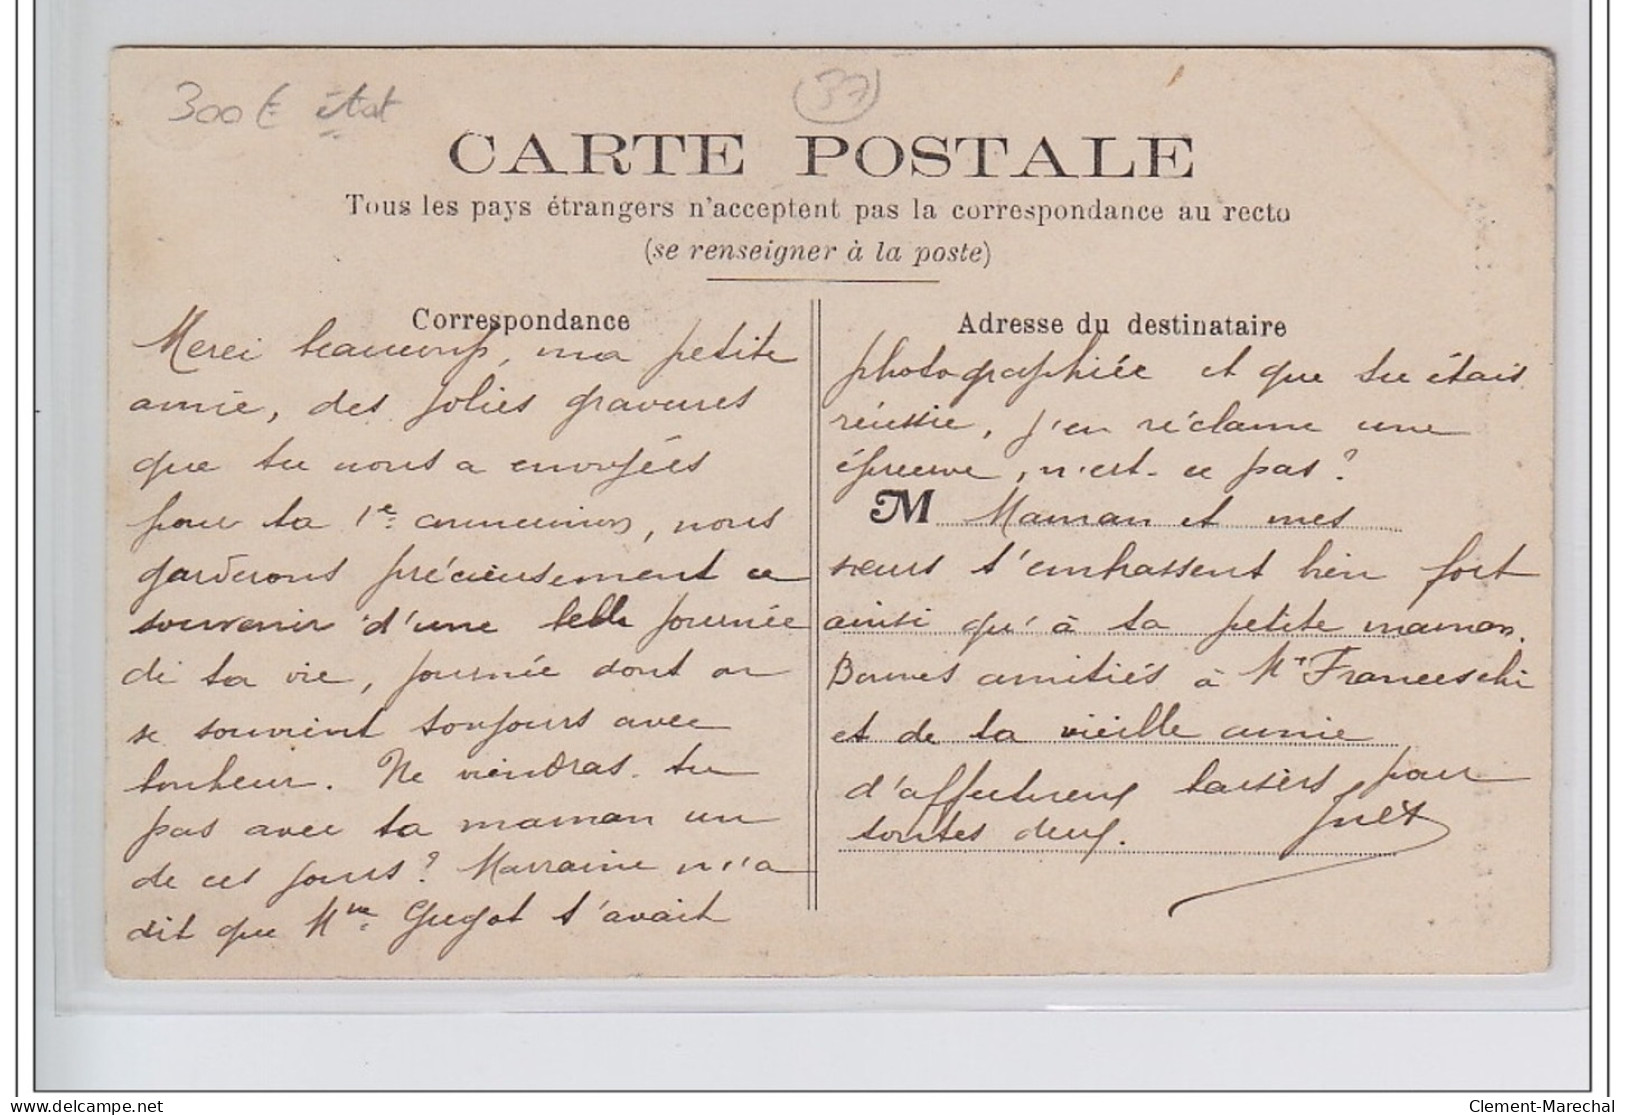 300€ état
37
CARTE POSTALE
Tous les pays étrangers n'acceptent pas la correspondance au recto
(se renseigner à la poste)
Correspondance
Merci beaucoup, ma petite
amie, des jolies gravures
que tu nous a envoyées
pour ta 1e communion, nous
garderons précieusement ce
souvenir d'une belle journée
de ta vie, journée dont on
se souvient toujours avec
bonheur. Ne viendras-tu
pas avec ta maman un
de ces jours? Marraine m'a
dit que Mme Guyot t'avait
Adresse du destinataire
photographiée et que tu étais
réussie, j'en réclame une
épreuve, n'est-ce pas?
M Maman et mes
sœurs t'embrassent bien fort
ainsi qu'à ta petite maman.
Bonnes amitiés à Mr Franceschi
et de ta vieille amie
d'affectueux baisers pour
toutes deux.
Clement-Marechal
www.delcampe.net